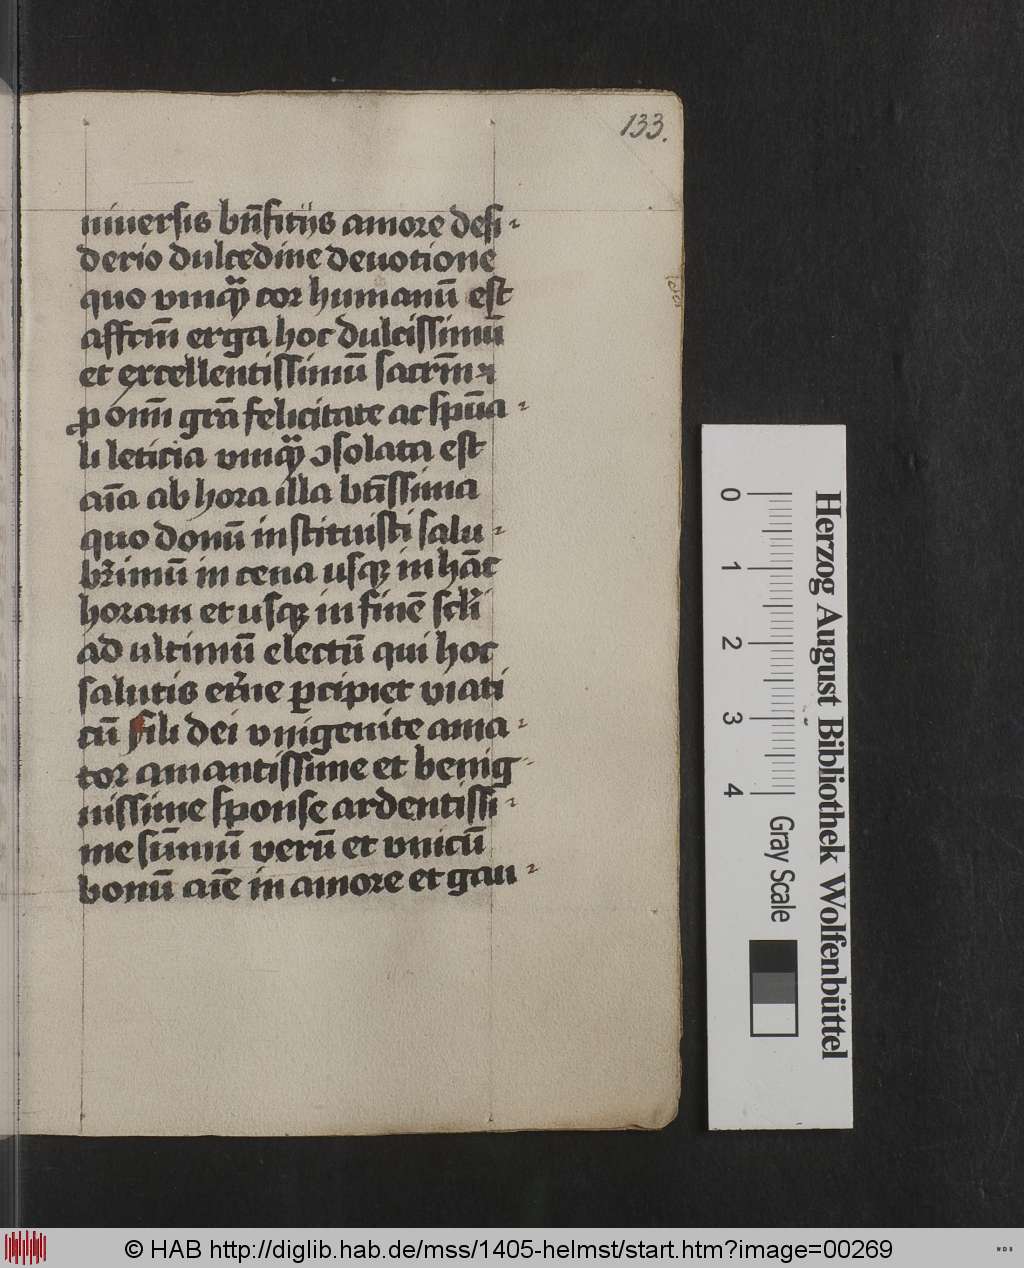 133.
niuersis bn̄fitijs amore desi-
derio dulcedine deuotione
quo vmqᷓ cor humanū est
affctm̄ erga hoc dulcissimū
et excellentissimū sacrm̄ ⁊
ꝓ om̄i gr̄a felicitate ac spūa-
li leticia vmqᷓ ꝯsolata est
aīa ab hora illa btīssima
quo donū instituisti salu-
br̄imū in cena usqꝫ in hāc
horam et usqꝫ in finē scl̄i
ad ultimū electū qui hoc
salutis et̄ne ꝑcipiet viati
cū fili dei vnigenite ama-
tor amantissime et benig-
nissime sponse ardentissi-
me sūmū verū et vnicū
bonū aīe in amore et gau-
0 1 2 3 4
Gray Scale
Herzog August Bibliothek Wolfenbüttel
© HAB http://diglib.hab.de/mss/1405-helmst/start.htm?image=00269